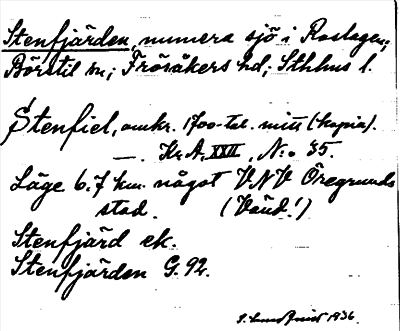 Stenfjärden, numera sjö i Roslagen;
Börstil sn; Frösåkers hd; Sthlms l.
Stenfiel, omkr. 1700-tal. mitt (kopia).
—. Kr.A. XXII, N:o 35.
Läge 6,7 km. något VNV Öregrunds
stad. (Vänd!)
Stenfjärd ek.
Stenfjärden G. 92.
1936.